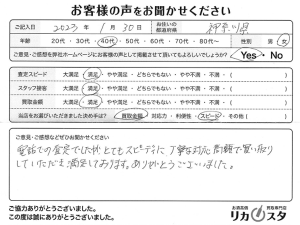 お客様の声をお聞かせください
ご記入日 2023年 1月 30日 お住いの都道府県 神奈川県
年齢 20代・30代・40代・50代・60代・70代・80代〜 性別 男・女
ご意見・ご感想を弊社ホームページにお客様の声として掲載させて頂いてもよろしいでしょうか? Yes・No
査定スピード 大満足・満足・やや満足・どちらでもない・やや不満・不満・( )
スタッフ接客 大満足・満足・やや満足・どちらでもない・やや不満・不満・( )
買取金額 大満足・満足・やや満足・どちらでもない・やや不満・不満・( )
当店をお選びいただきました決め手は? 買取金額・対応力・利便性・スピード・その他( )
ご意見・ご感想などぜひお聞かせください
電話での査定でしたが とてもスピーディに 丁寧な対応 高額で買い取り
していただき 満足しております。ありがとうございました。
ご協力ありがとうございました。
この度は誠にありがとうございました。
お酒高価買取専門店
リカスタ